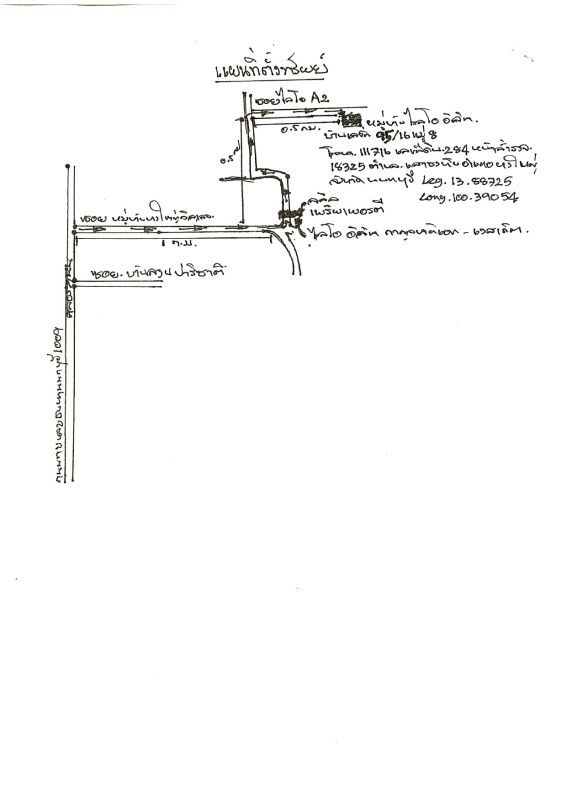 แผนที่ตั้งทรัพย์
ซอยไลโอ A2
หมู่บ้านไลโอ อิลิท.
0.5 กม.
บ้านเลขที่ 95/16 หมู่ 8
โฉนด. 111716 เลขที่ดิน. 284 หน้าสำรวจ.
18325 ตำบล. เสาธงหิน อำเภอ บางใหญ่
จังหวัด นนทบุรี Leg. 13.88725
Long. 100.39054
0.5
ลลิล
เพร็บเพอร์ตี้
ไลโอ อิลิท กาญจนาภิเษก - เวสเกต.
ซอย หมู่บ้าน
1 ก.ม.
ซอย. บ้านสวน ปาริชาติ
1009